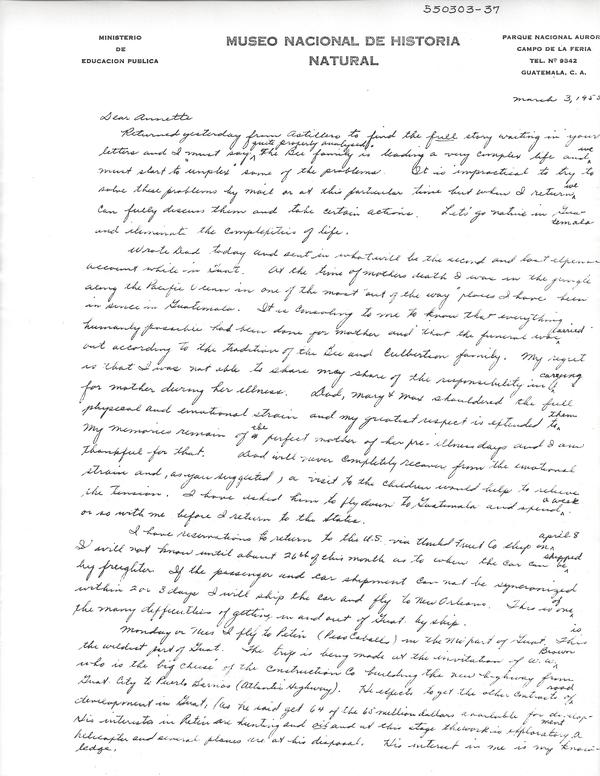 550303-37
MINISTERIO
DE
EDUCACION PUBLICA
MUSEO NACIONAL DE HISTORIA
NATURAL
PARQUE NACIONAL AUROR
CAMPO DE LA FERIA
TEL. Nº 9342
GUATEMALA, C. A.
March 3, 1955
Dear Annette
Returned yesterday from Astillero to find the full story waiting in your
letters and I "must say", quite properly analysed. The Bee family is leading a very complex life and we
must start to "unplex" some of the problems. It is impractical to try to
solve these problems by mail or at this particular time but when I return, we
can fully discuss them and take certain actions. Let's go native in Guatemala
and eliminate the complexities of life.
Wrote Dad today and sent in what will be the second and last expense
account while in Guat. At the time of mothers death I was in the jungle
along the Pacific Ocean in one of the most "out of the way" places I have been
in since in Guatemala. It is consoling to me to know that everything
humanly possible had been done for mother and that the funeral was carried
out according to the tradition of the Bee and Culbertson family. My regret
is that I was not able to share my share of the responsibility in careing
for mother during her illness. Dad, Mary & Max shouldered the full
physical and emotional strain and my greatest respect is extended to them
My memories remain of the perfect mother of her pre-illness days and I am
thankful for that. Dad will never completely recover from the emotional
strain and, as you suggested, a visit to the children would help to relieve
the tension. I have asked him to fly down to Guatemala and spend a week
or so with me before I return to the States.
I have reservations to return to the U.S. via United Fruit Co ship on April 8
I will not know until about 26th of this month as to when the car can be shipped
by freighter. If the passenger and car shipment can not be syncronized
within 2 or 3 days I will ship the car and fly to New Orleans. This is one of
the many difficulties of getting in and out of Guat. by ship.
Monday or Tues I fly to Petén (Paso Caballo) in the NW part of Guat. This is
the wildest part of Guat. The trip is being made at the invitation of W. A. Brown
who is the big cheese of the Construction Co building the new highway from
Guat. City to Puerto Barrios (Atlantic Highway). He expects to get the other contracts of road
development in Guat, (as he said get 64 of the 65 million dollars available for development
His interests in Petén are hunting and oil and at this stage the work is exploratory. A
helicopter and several planes are at his disposal. His interest in me is my know-
ledge.